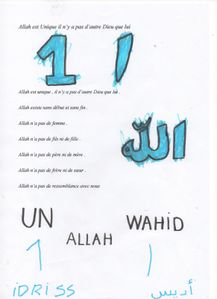 Allah est Unique il n'y a pas d'autre Dieu que lui
1 ١
Allah est unique , il n'y a pas d'autre Dieu que lui .
Allah existe sans début et sans fin .
Allah n'a pas de femme .
الله
Allah n'a pas de fils ni de fille .
Allah n'a pas de père ni de mère .
Allah n'a pas de frère ni de sœur .
Allah n'a pas de ressemblance avec nous
UN ALLAH WAHID
1 ١
iDRiSS أديس